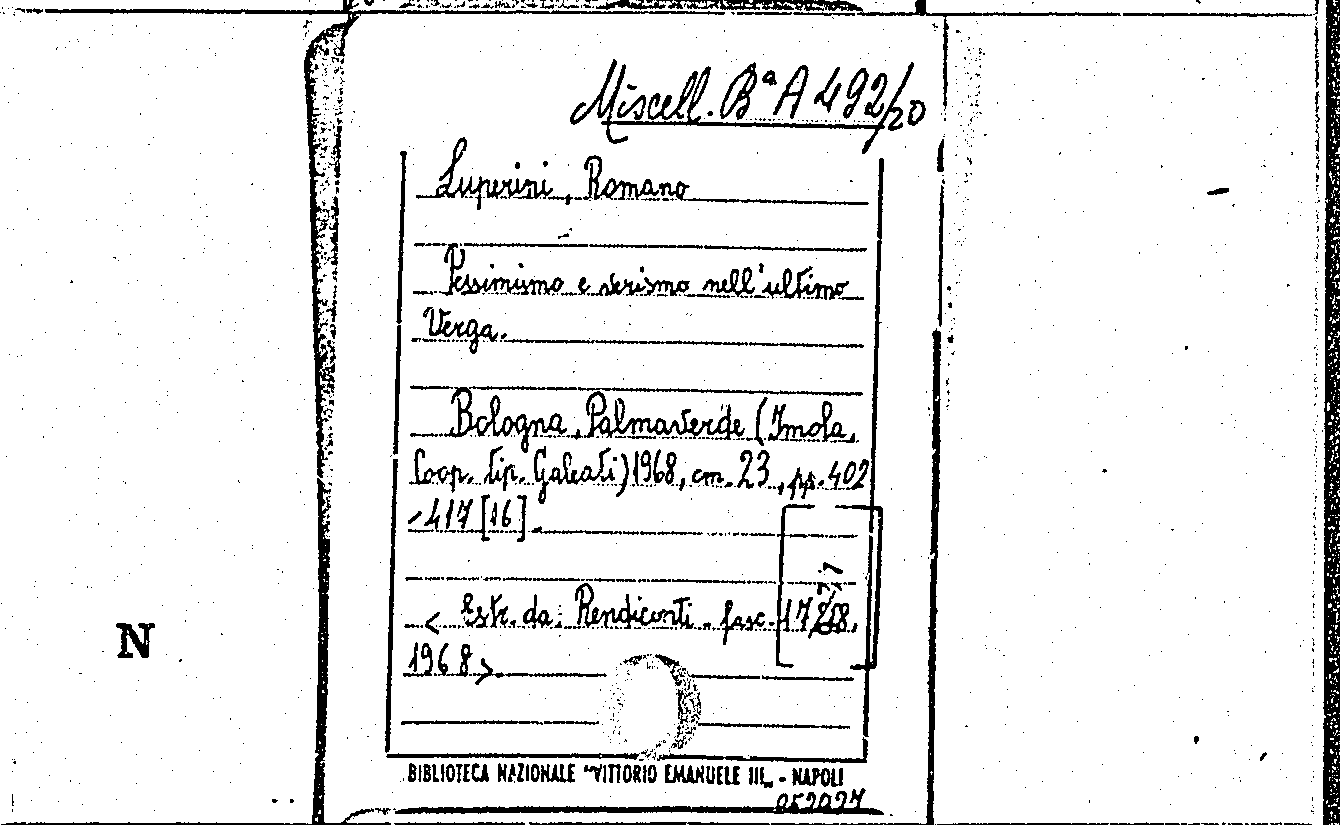 Miscell. Bª A 492/20
Luperini, Romano
Pessimismo e verismo nell'ultimo
Verga.
Bologna, Palmaverde (Imola,
Coop. tip. Galeati) 1968, cm. 23, pp. 402
-417 [16].
< Estr. da: Rendiconti. fasc. 17/18,
1968 >.
N
BIBLIOTECA NAZIONALE "VITTORIO EMANUELE III„ - NAPOLI